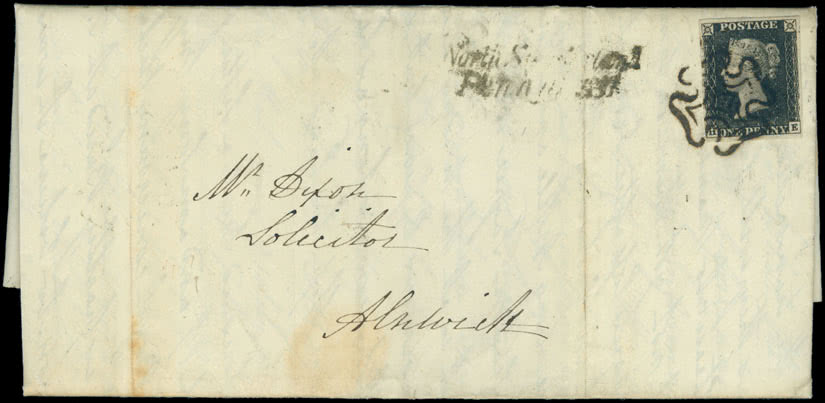 North Sunderland
Penny Post
POSTAGE
H ONE PENNY E
Mr. Dixon
Solicitor
Alnwick